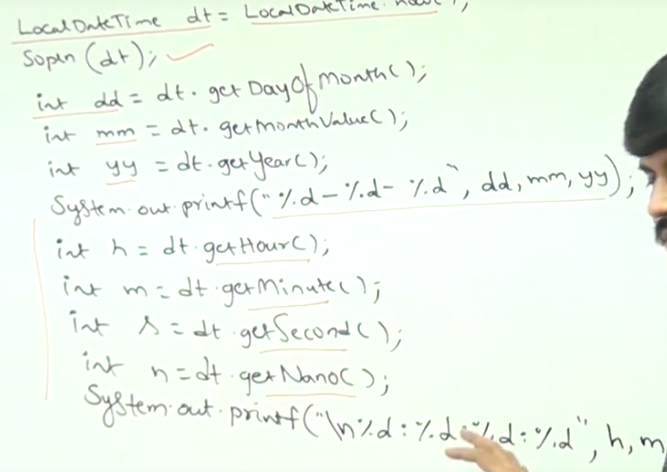 LocalDateTime dt = LocalDateTime.now();
Sopln (dt);
int dd = dt.getDayOfMonth();
int mm = dt.getMonthValue();
int yy = dt.getYear();
System.out.printf("%d-%d-%d", dd, mm, yy);
int h = dt.getHour();
int m = dt.getMinute();
int s = dt.getSecond();
int n = dt.getNano();
System.out.printf("\n%d:%d:%d:%d", h, m